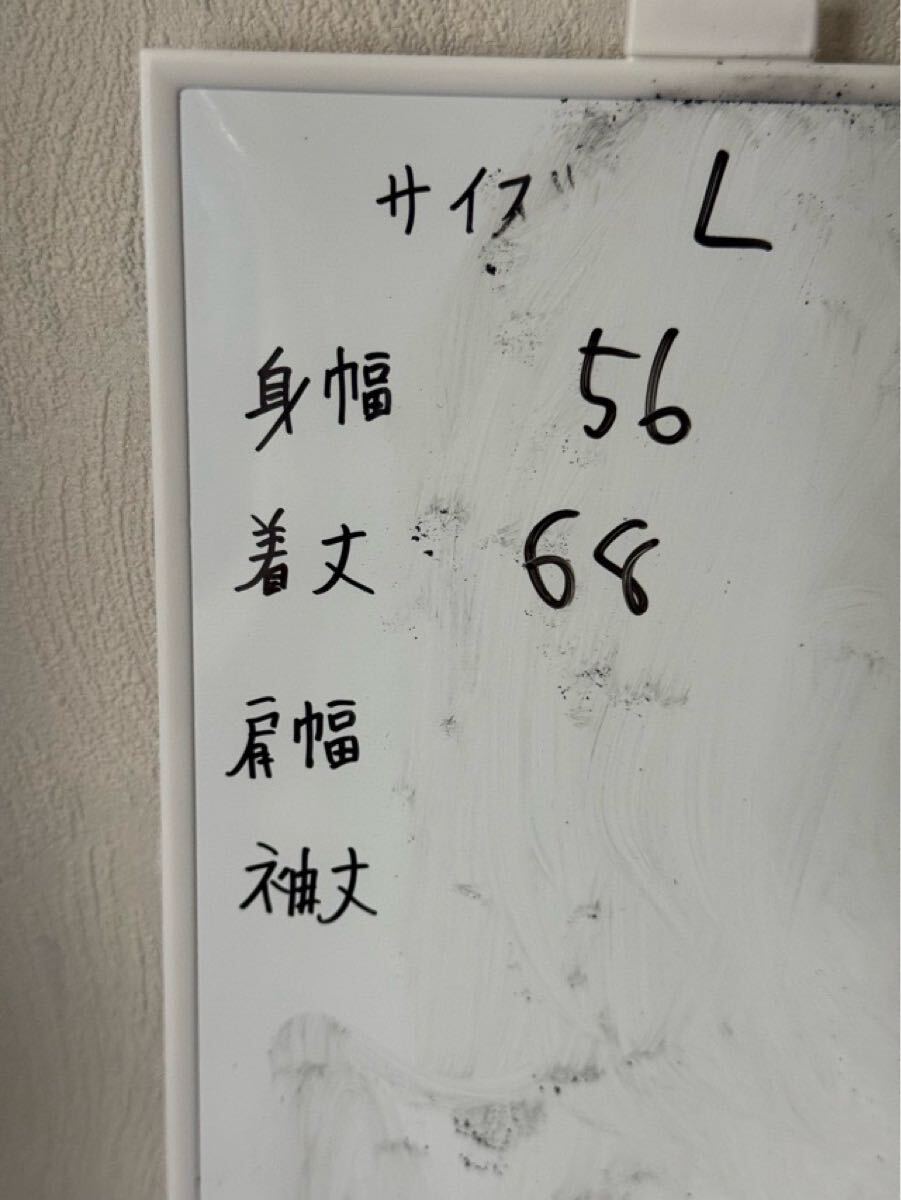 サイズ L
身幅 56
着丈 68
肩幅
袖丈